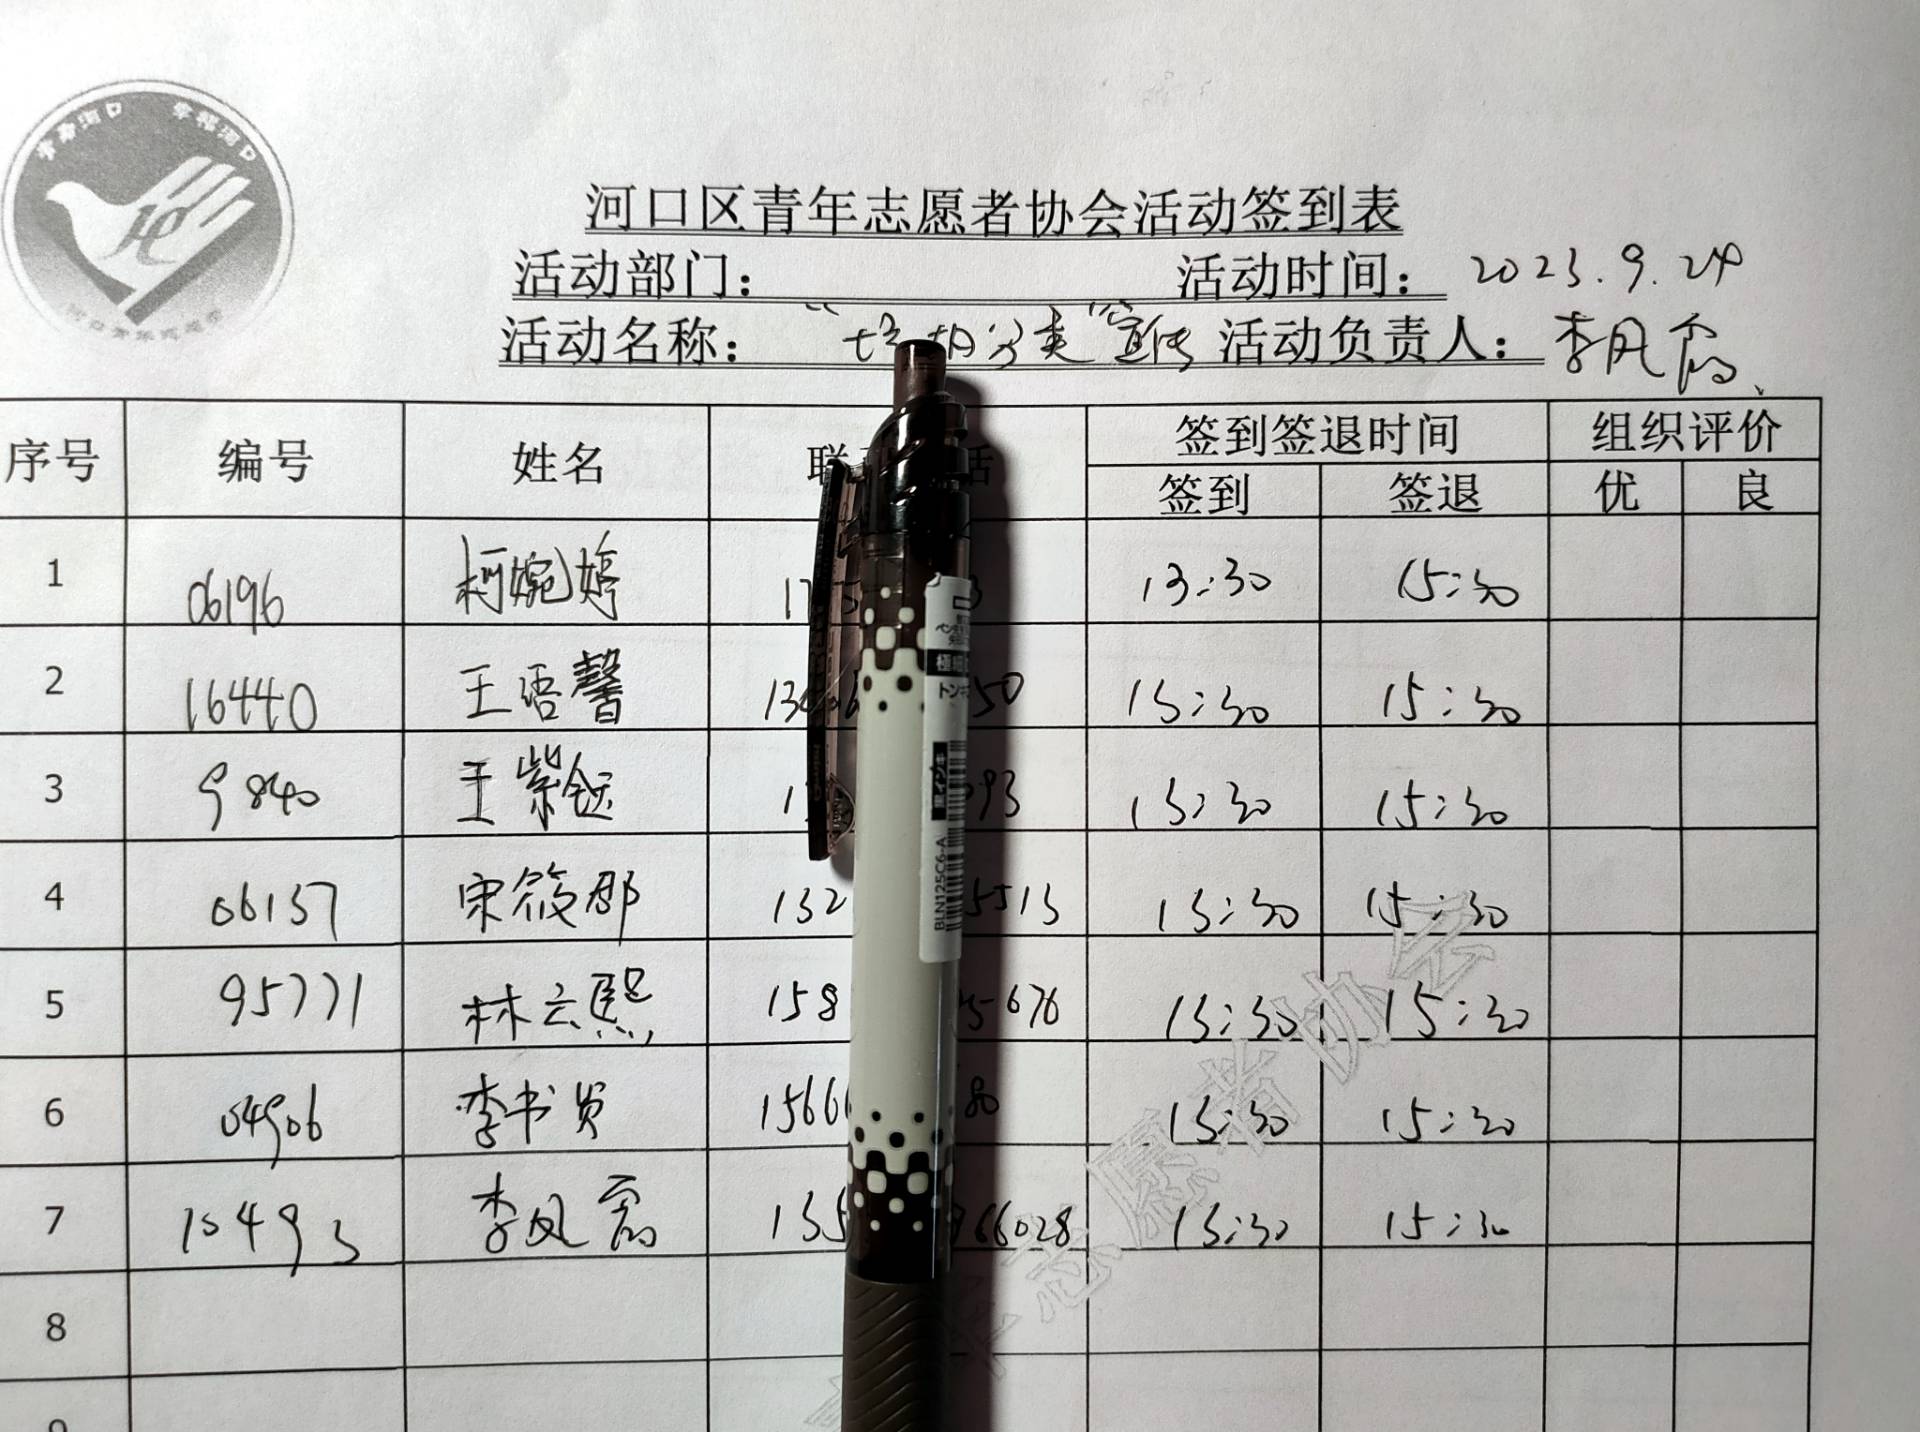 青春河口 幸福河口
河口区青年志愿者协会活动签到表
活动部门： 活动时间： 2023.9.24
活动名称： "垃圾分类"宣传 活动负责人： 李凤
序号 编号 姓名 联 话 签到签退时间 组织评价
签到 签退 优 良
1 06196 柯婉婷 13:30 15:30
2 16440 王语馨 50 13:30 15:30
3 9840 王紫钰 093 13:30 15:30
4 06137 宋筱郡 132 5513 13:30 15:30
5 95771 林云熙 158 5676 13:30 15:30
6 04906 李书贤 1566 80 13:30 15:30
7 10493 李凤 135 966028 13:30 15:30
8
9
極細
トンボ
黒インキ
BLN125C6-A
志愿者协会